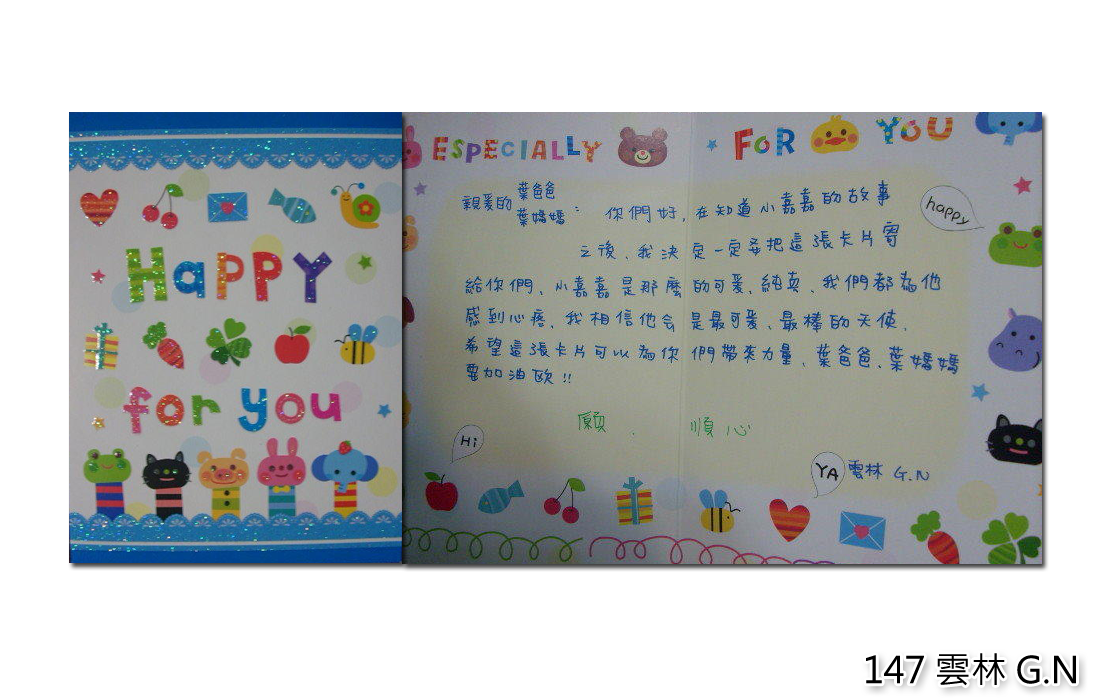 HAPPY
for you
ESPECIALLY FOR YOU
親愛的葉爸爸
葉媽媽：你們好，在知道小嘉嘉的故事
happy
之後、我決定一定要把這張卡片寄
給你們、小嘉嘉是那麼的可愛、純真、我們都為他
感到心疼、我相信他会是最可愛、最棒的天使、
希望這張卡片可以為你們帶來力量、葉爸爸、葉媽媽
要加油歐!!
願． 順心
Hi
YA
雲林 G.N
147 雲林 G.N